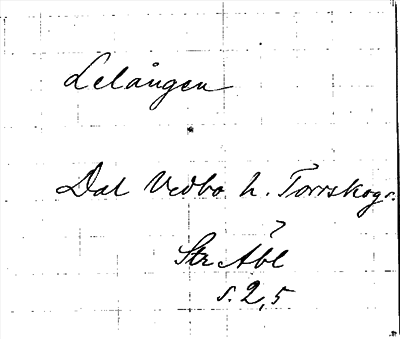 Lelången
Dal Vedbo h. Torrskogs.
Str Åbl
s. 2,5